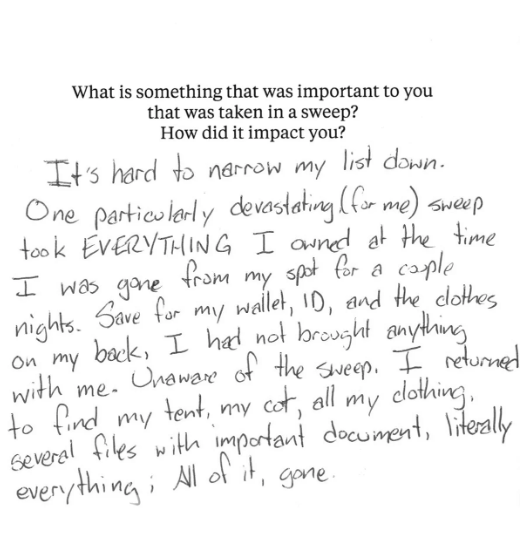 What is something that was important to you
that was taken in a sweep?
How did it impact you?
It's hard to narrow my list down.
One particularly devastating (for me) sweep
took EVERYTHING I owned at the time
I was gone from my spot for a couple
nights. Save for my wallet, ID, and the clothes
on my back, I had not brought anything
with me. Unaware of the sweep. I returned
to find my tent, my cot, all my clothing,
several files with important document, literally
everything; All of it, gone.